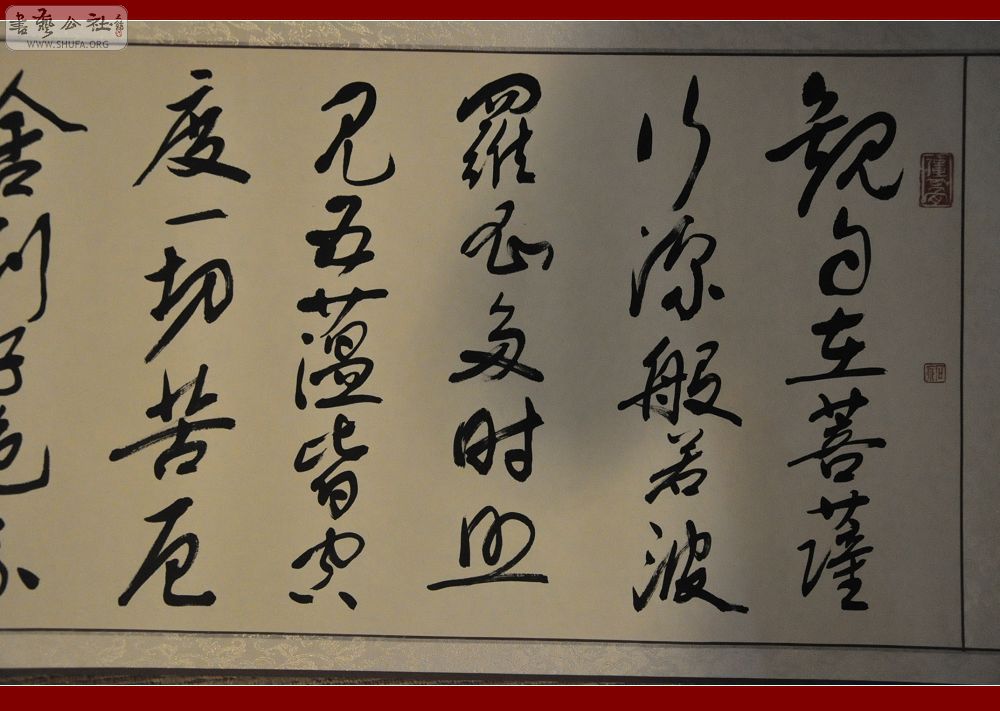 書藝公社
WWW.SHUFA.ORG
觀自在菩薩
行深般若波
羅蜜多时照
見五蘊皆空
度一切苦厄
舍利子色不